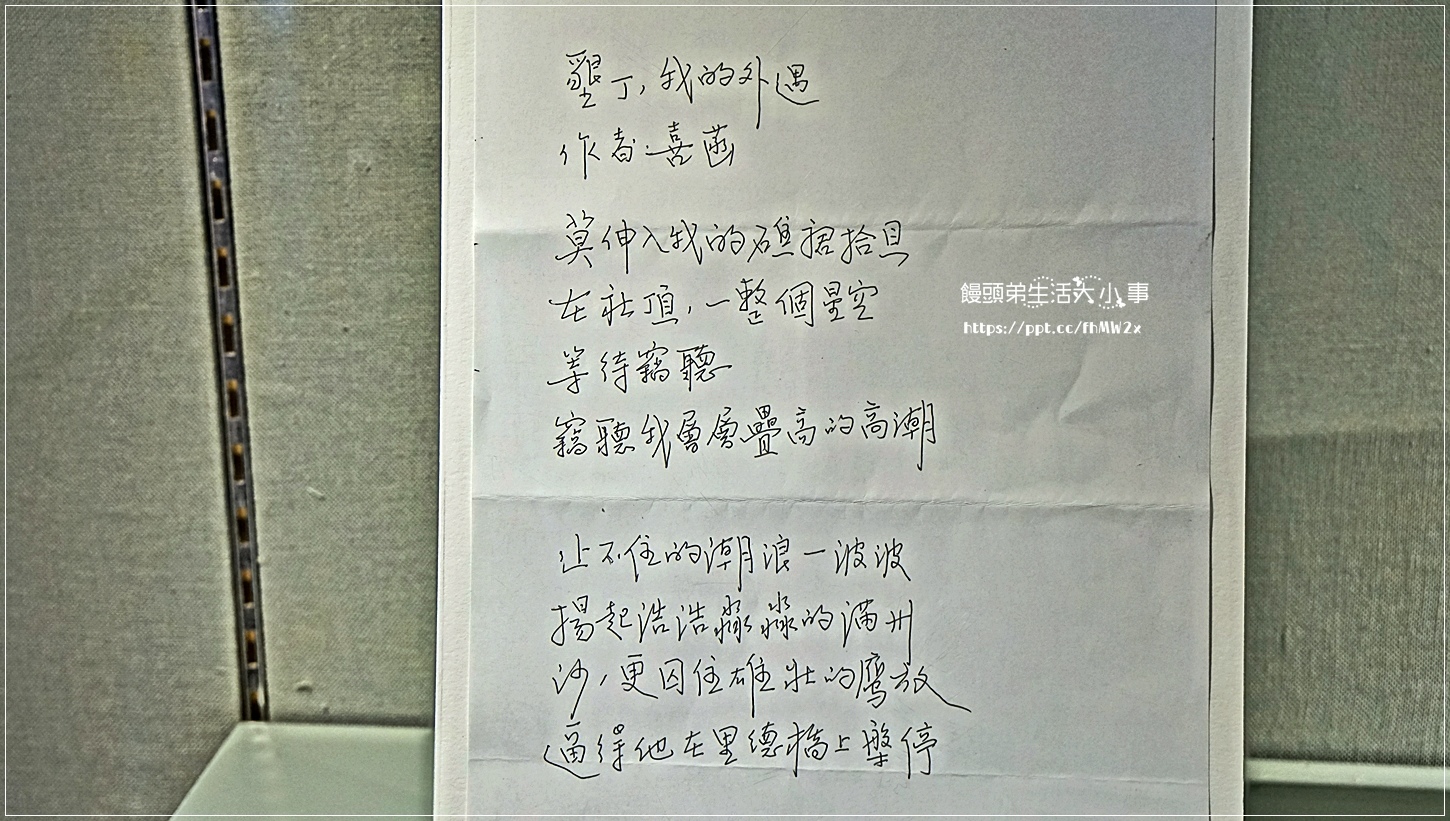 墾丁,我的外遇
作者:喜菡
莫伸入我的礁裙拾貝
在社頂,一整個星空
等待竊聽
竊聽我層層疊高的高潮
止不住的潮浪一波波
揚起浩浩淼淼的滿州
沙,更囚住雄壯的鷹放
逼得他在里德橋上盤停
饅頭弟生活大小事
https://ppt.cc/fhMW2x